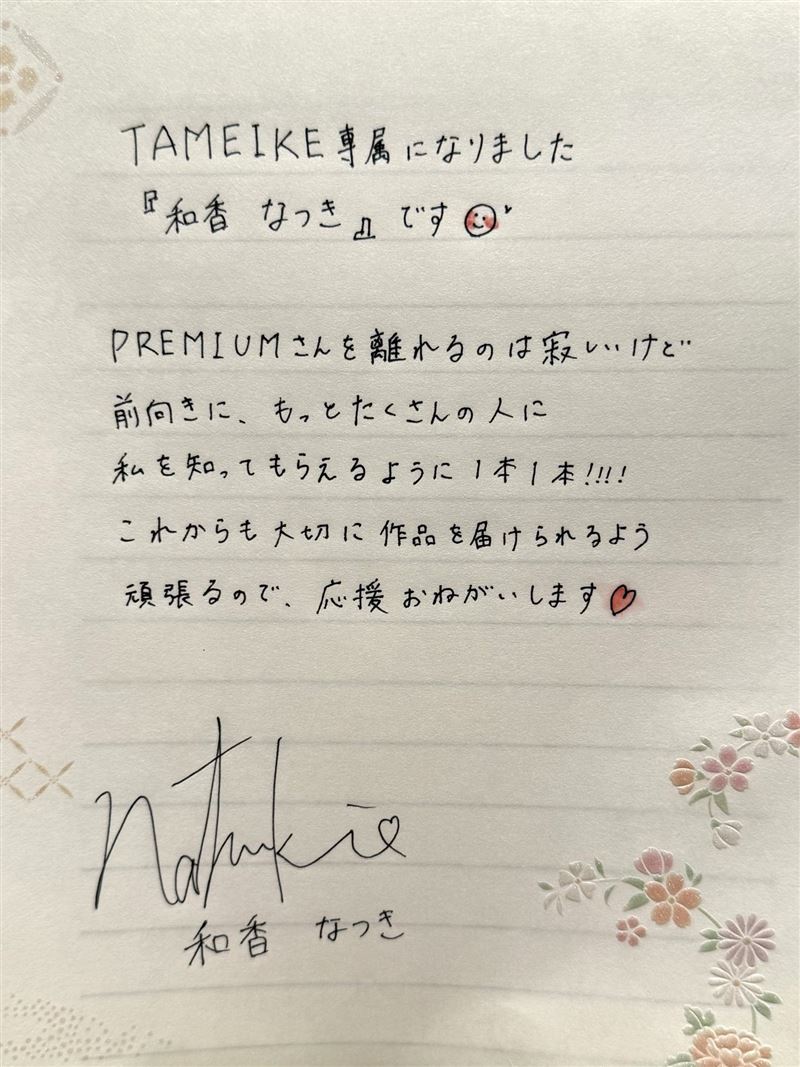 TAMEIKE専属になりました
『和香 なつき』です
PREMIUMさんを離れるのは寂しいけど
前向きに、もっとたくさんの人に
私を知ってもらえるように1本1本!!!!
これからも大切に作品を届けられるよう
頑張るので、応援おねがいします♡
Natsuki♡
和香 なつき